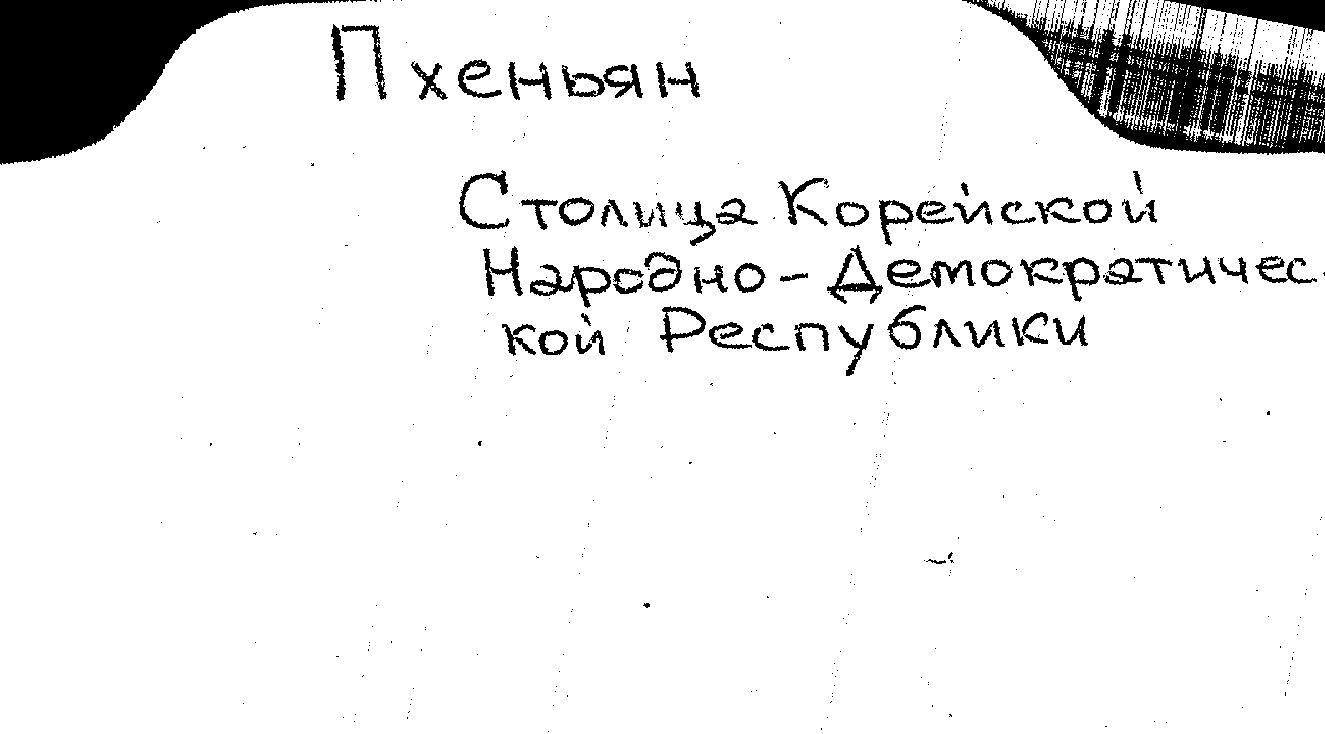 Пхеньян
Столица Корейской
Народно-Демократичес-
кой Республики